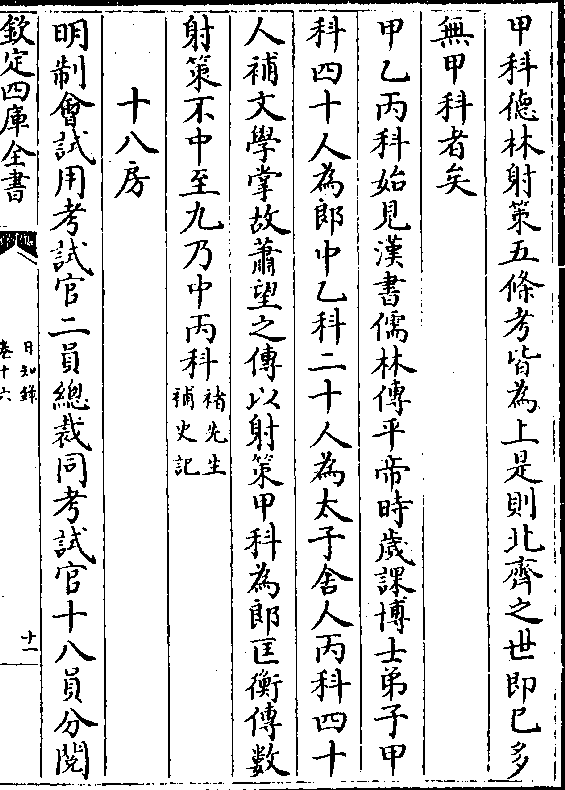 甲科德林射策五條考皆為上是則北齊之世即已多
無甲科者矣
甲乙丙科始見漢書儒林傳平帝時歲課博士弟子甲
科四十人為郎中乙科二十人為太子舍人丙科四十
人補文學掌故蕭望之傳以射策甲科為郎匡衡傳數
射策不中至九乃中丙科褚先生
補史記
十八房
明制會試用考試官二員總裁同考試官十八員分閱
欽定四庫全書
日知錄
卷十六
十一